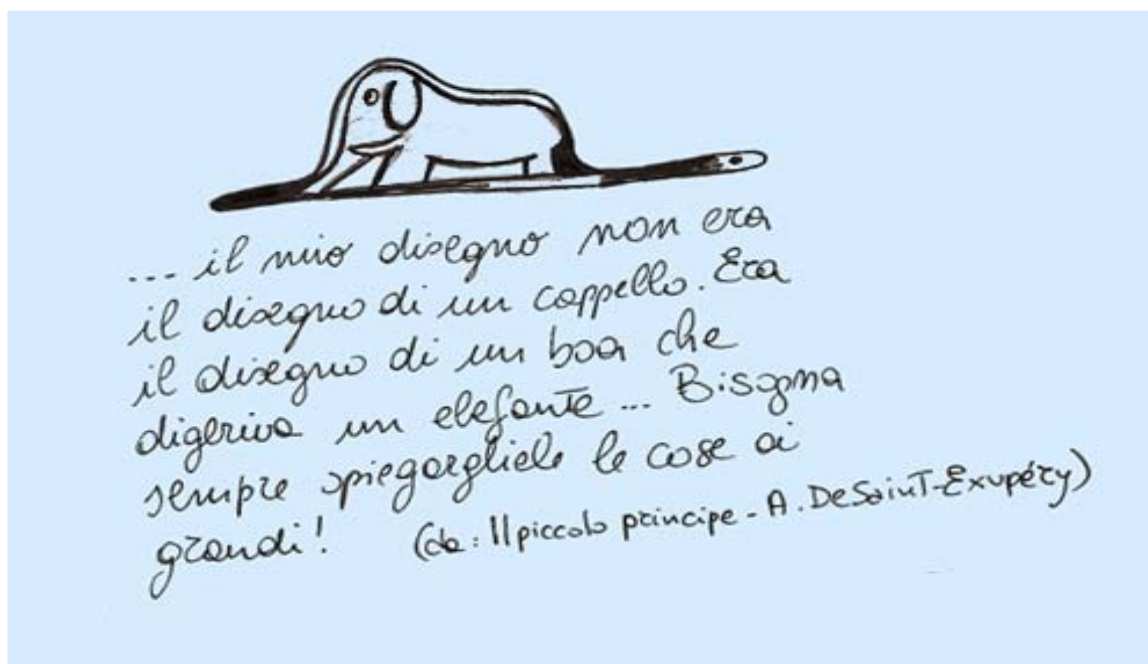 ... il mio disegno non era
il disegno di un cappello. Era
il disegno di un boa che
digeriva un elefante ... Bisogna
sempre spiegargliele le cose ai
grandi! (da: Il piccolo principe - A. De Saint-Exupéry)